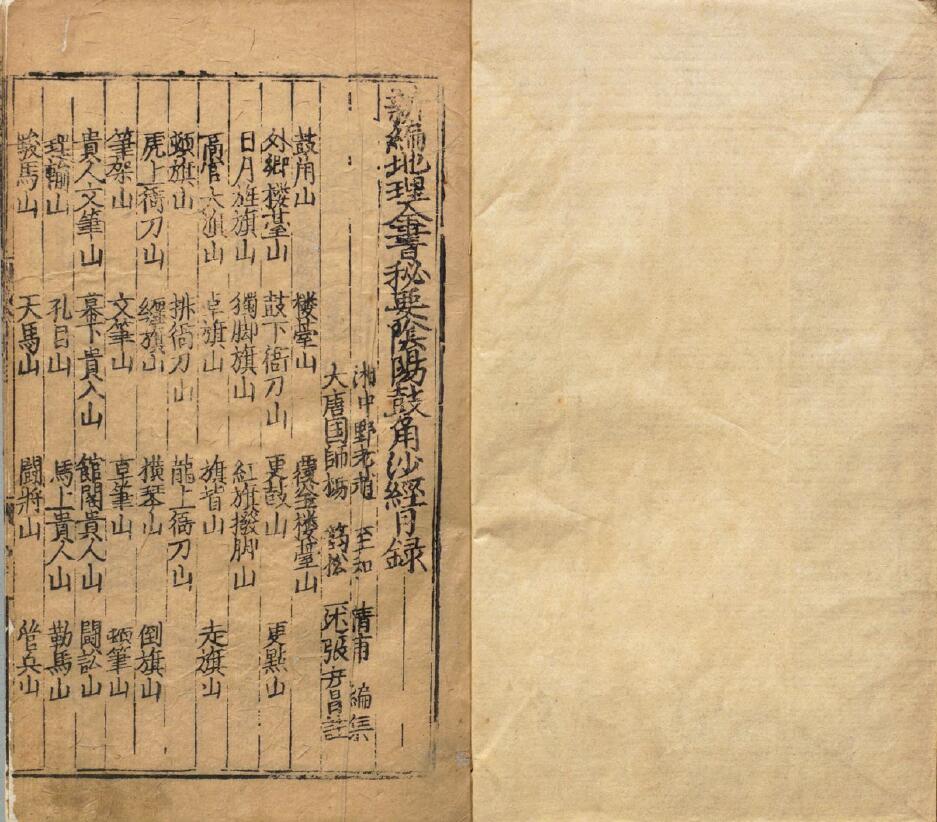 新編地理全書秘要陰陽鼓角沙經目録
湘中野老 至和 清甫 編集
大唐国師楊 筠松 張 註
鼓角山 楼臺山 楼臺山 
外鄉楼臺山 鼓下衙刀山 更鼓山 更點山
日月旌旗山 獨脚旗山 紅旗撥脚山
高官大旗山 卓旗山 旗山 走旗山
頓旗山 排衙刀山 龍上衙刀山
虎上衙刀山 纏旗山 橫琴山 倒旗山
筆架山 文筆山 草筆山 頓筆山
貴人文筆山 幕下貴人山 館閣貴人山 鬪訟山
山 孔目山 馬上貴人山 勒馬山
駿馬山 天馬山 鬪將山 管兵山